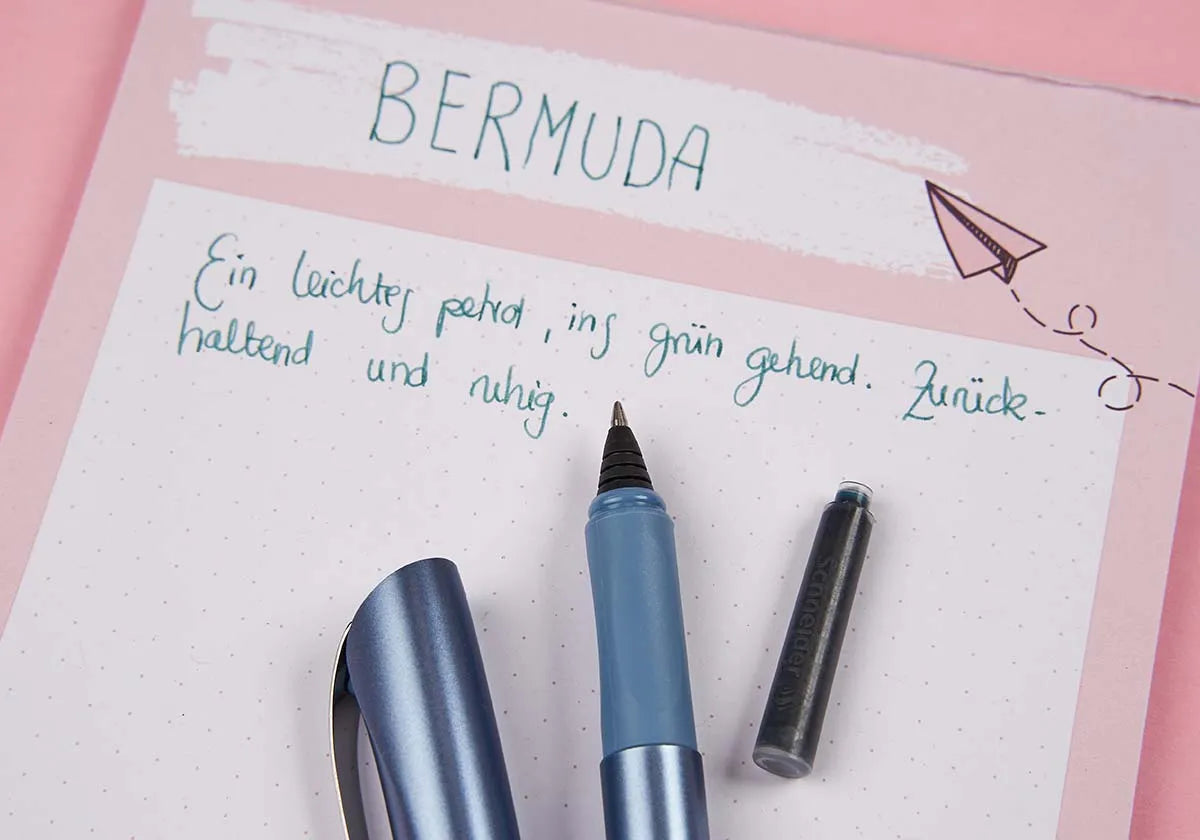 BERMUDA
Ein leichtes petrol, ins grün gehend. Zurück-
haltend und ruhig.
Schneider